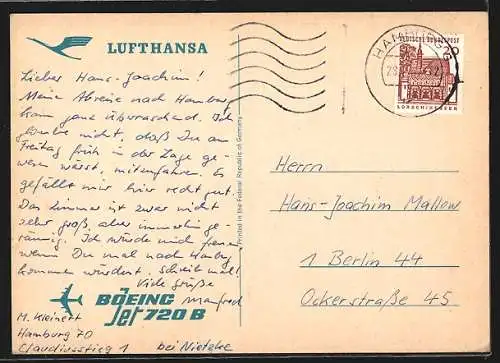 LUFTHANSA
Lieber Hans-Joachim!
Meine Abreise nach Hamburg
kam ganz überraschend. Ich
glaube nicht, daß Du am
Freitag früh in der Lage ge-
wesen wärst, mitzufahren. Es
gefällt mir hier recht gut.
Das Zimmer ist zwar nicht
sehr groß, aber immerhin ge-
räumig. Ich würde mich freuen,
wenn Du mal nach Hambg
kommen würdest. Schreib mal!
Viele Grüße
Manfred
BOEING
Jet 720 B
M. Kleinert
Hamburg 70
Claudiusstieg 1 bei Nietzke
Printed in the Federal Republic of Germany
HAMBURG
DEUTSCHE BUNDESPOST
LORSCH/HESSEN
Herrn
Hans-Joachim Mallow
1 Berlin 44
Ockerstraße 45